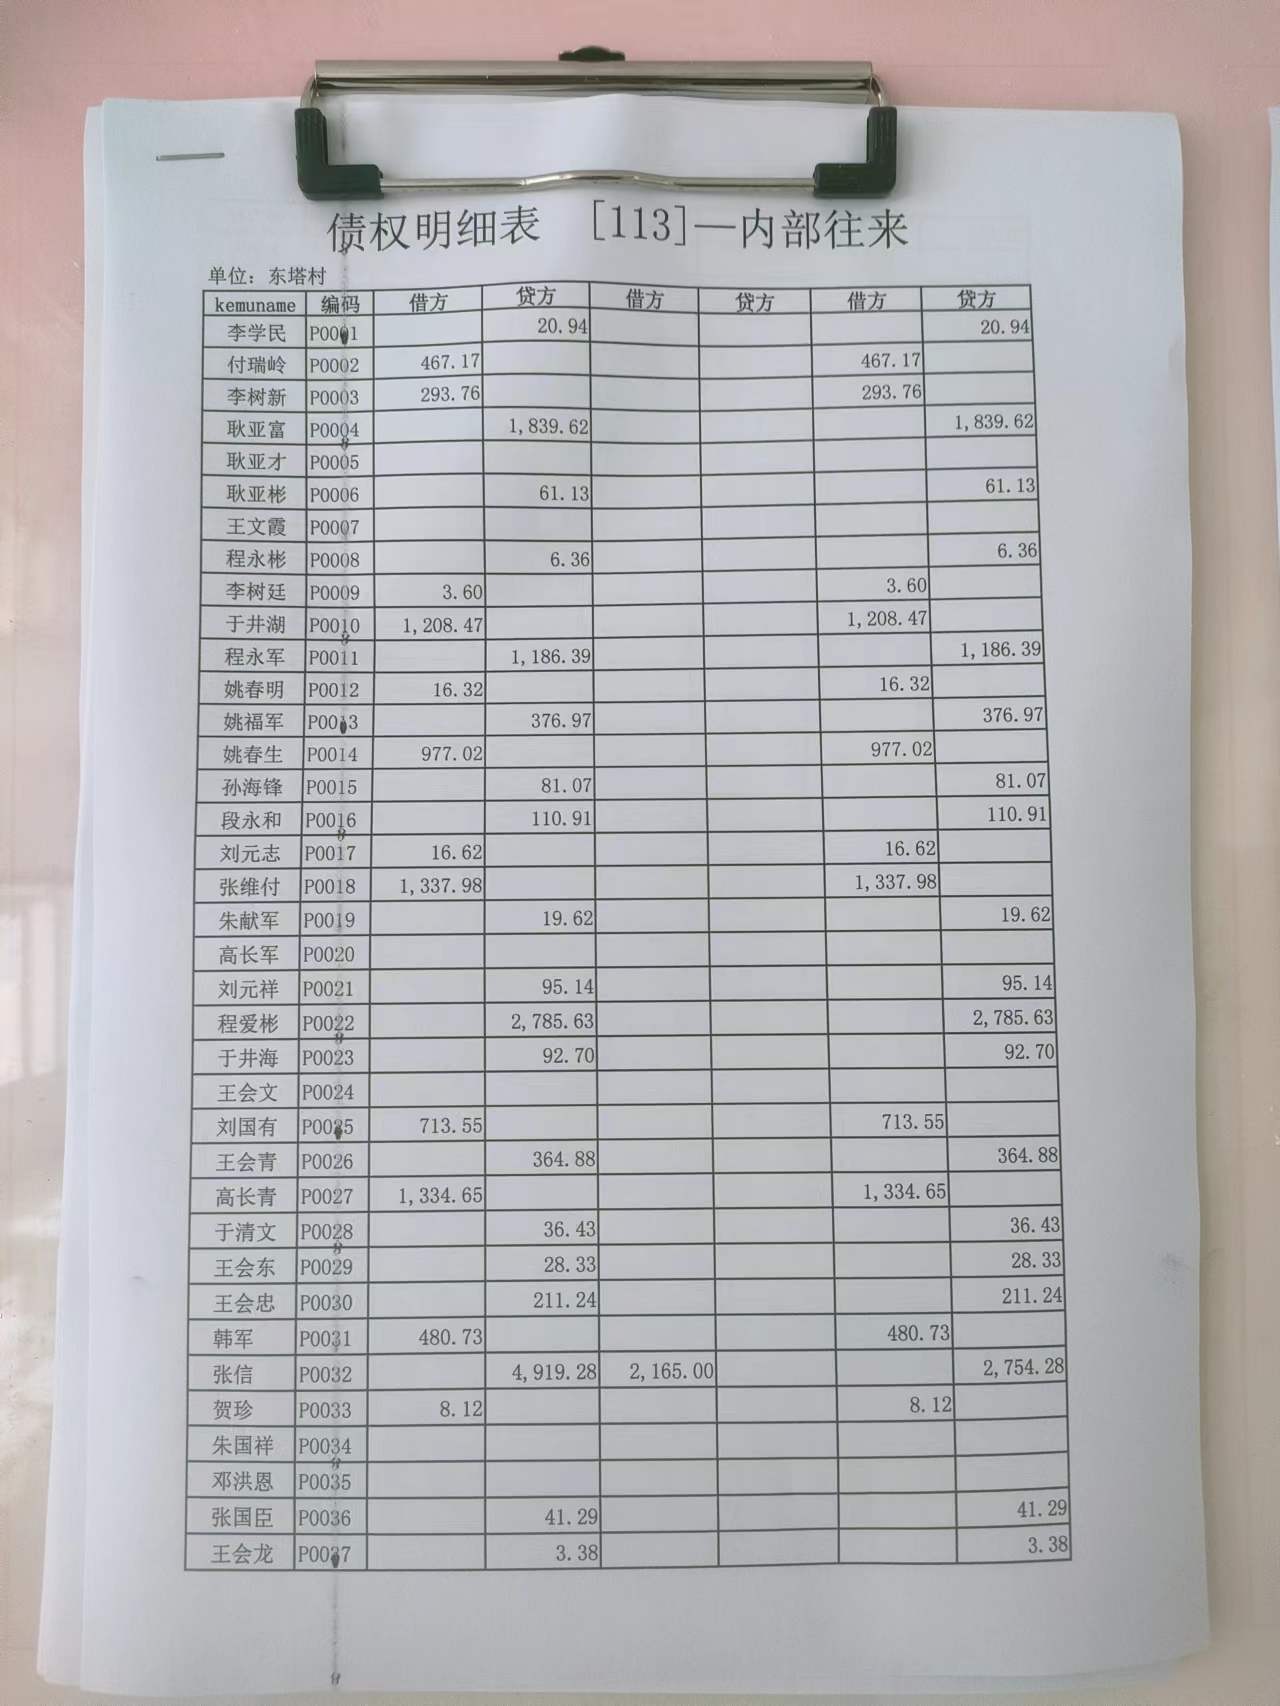 债权明细表 [113]—内部往来
单位：东塔村
kemuname 编码 借方 贷方 借方 贷方 借方 贷方
李学民 P0001 20.94 20.94
付瑞岭 P0002 467.17 467.17
李树新 P0003 293.76 293.76
耿亚富 P0004 1,839.62 1,839.62
耿亚才 P0005
耿亚彬 P0006 61.13 61.13
王文霞 P0007
程永彬 P0008 6.36 6.36
李树廷 P0009 3.60 3.60
于井湖 P0010 1,208.47 1,208.47
程永军 P0011 1,186.39 1,186.39
姚春明 P0012 16.32 16.32
姚福军 P0013 376.97 376.97
姚春生 P0014 977.02 977.02
孙海锋 P0015 81.07 81.07
段永和 P0016 110.91 110.91
刘元志 P0017 16.62 16.62
张维付 P0018 1,337.98 1,337.98
朱献军 P0019 19.62 19.62
高长军 P0020
刘元祥 P0021 95.14 95.14
程爱彬 P0022 2,785.63 2,785.63
于井海 P0023 92.70 92.70
王会文 P0024
刘国有 P0025 713.55 713.55
王会青 P0026 364.88 364.88
高长青 P0027 1,334.65 1,334.65
于清文 P0028 36.43 36.43
王会东 P0029 28.33 28.33
王会忠 P0030 211.24 211.24
韩军 P0031 480.73 480.73
张信 P0032 4,919.28 2,165.00 2,754.28
贺珍 P0033 8.12 8.12
朱国祥 P0034
邓洪恩 P0035
张国臣 P0036 41.29 41.29
王会龙 P0037 3.38 3.38